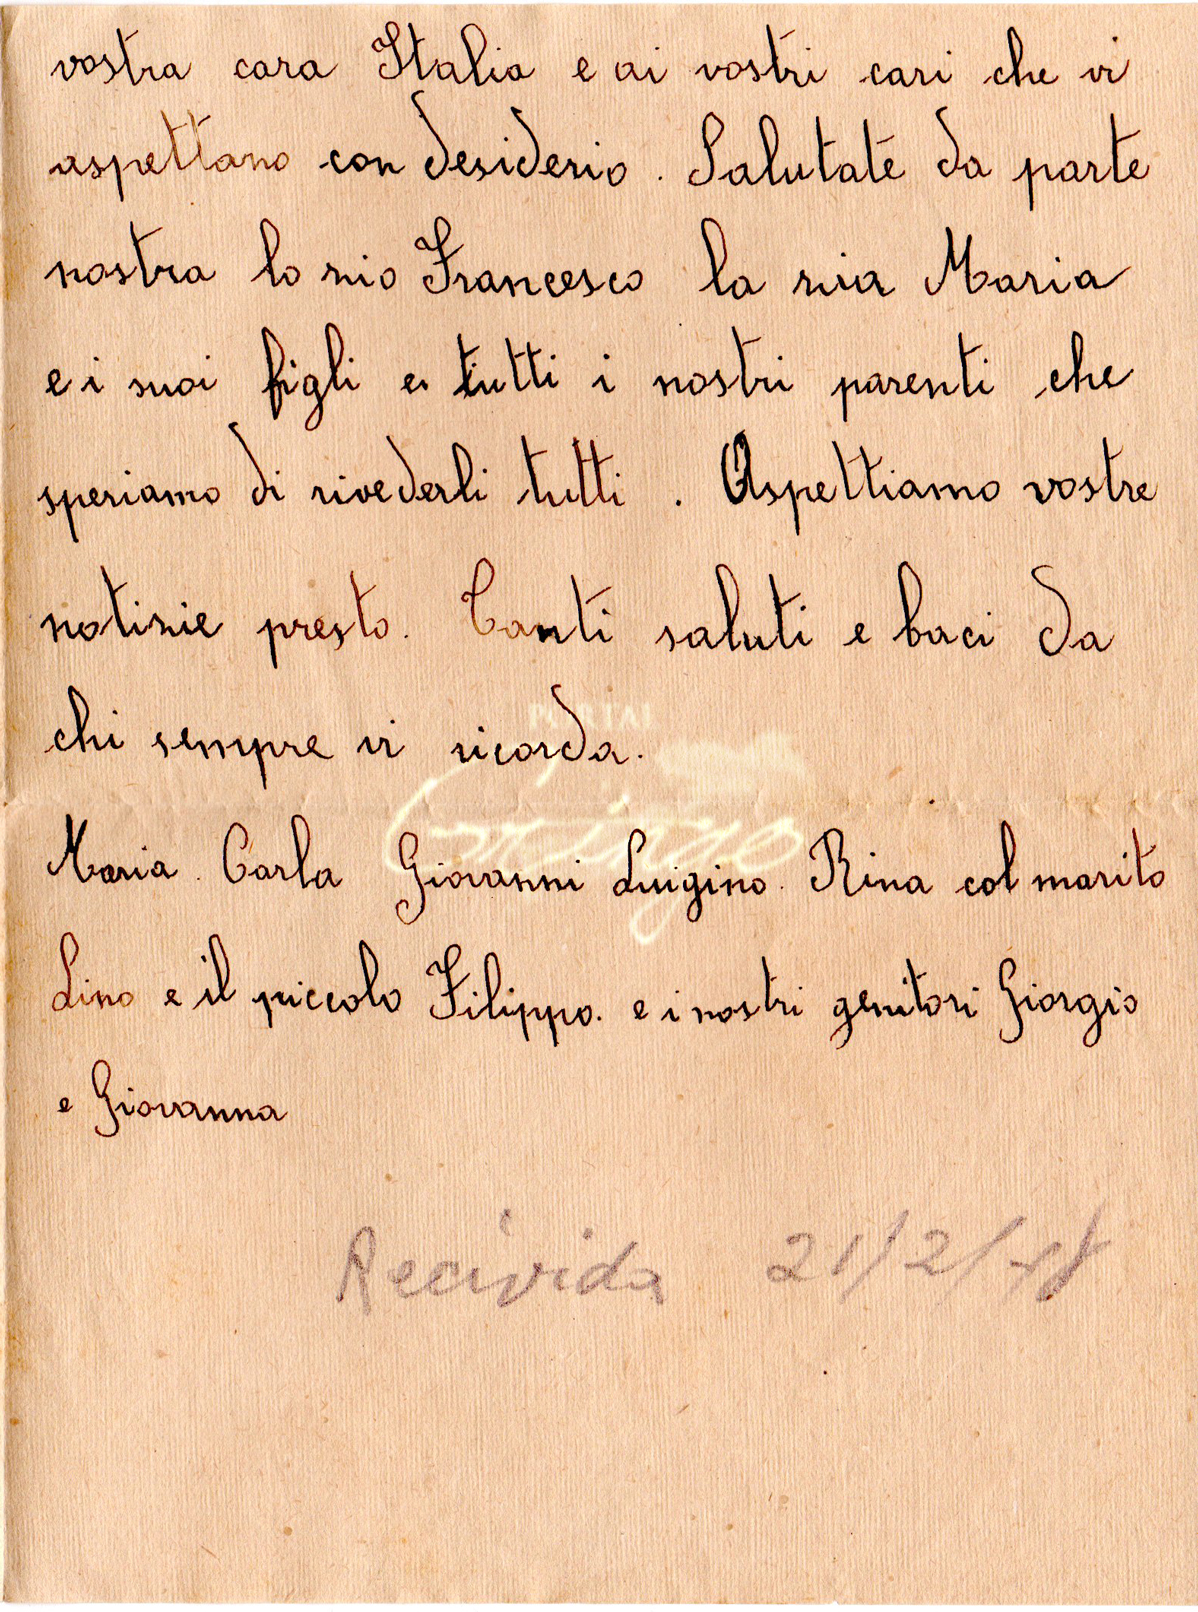 vostra cara Italia e ai vostri cari che vi
aspettano con desiderio. Salutate da parte
nostra lo zio Francesco la zia Maria
e i suoi figli e tutti i nostri parenti che
speriamo di rivederli tutti. Aspettiamo vostre
notizie presto. Tanti saluti e baci da
chi sempre vi ricorda.
PORTAL
Maria. Carla Giovanni Luigino. Rina col marito
Lino e il piccolo Filippo. e i nostri genitori Giorgio
e Giovanna
Recivida 21/2/48